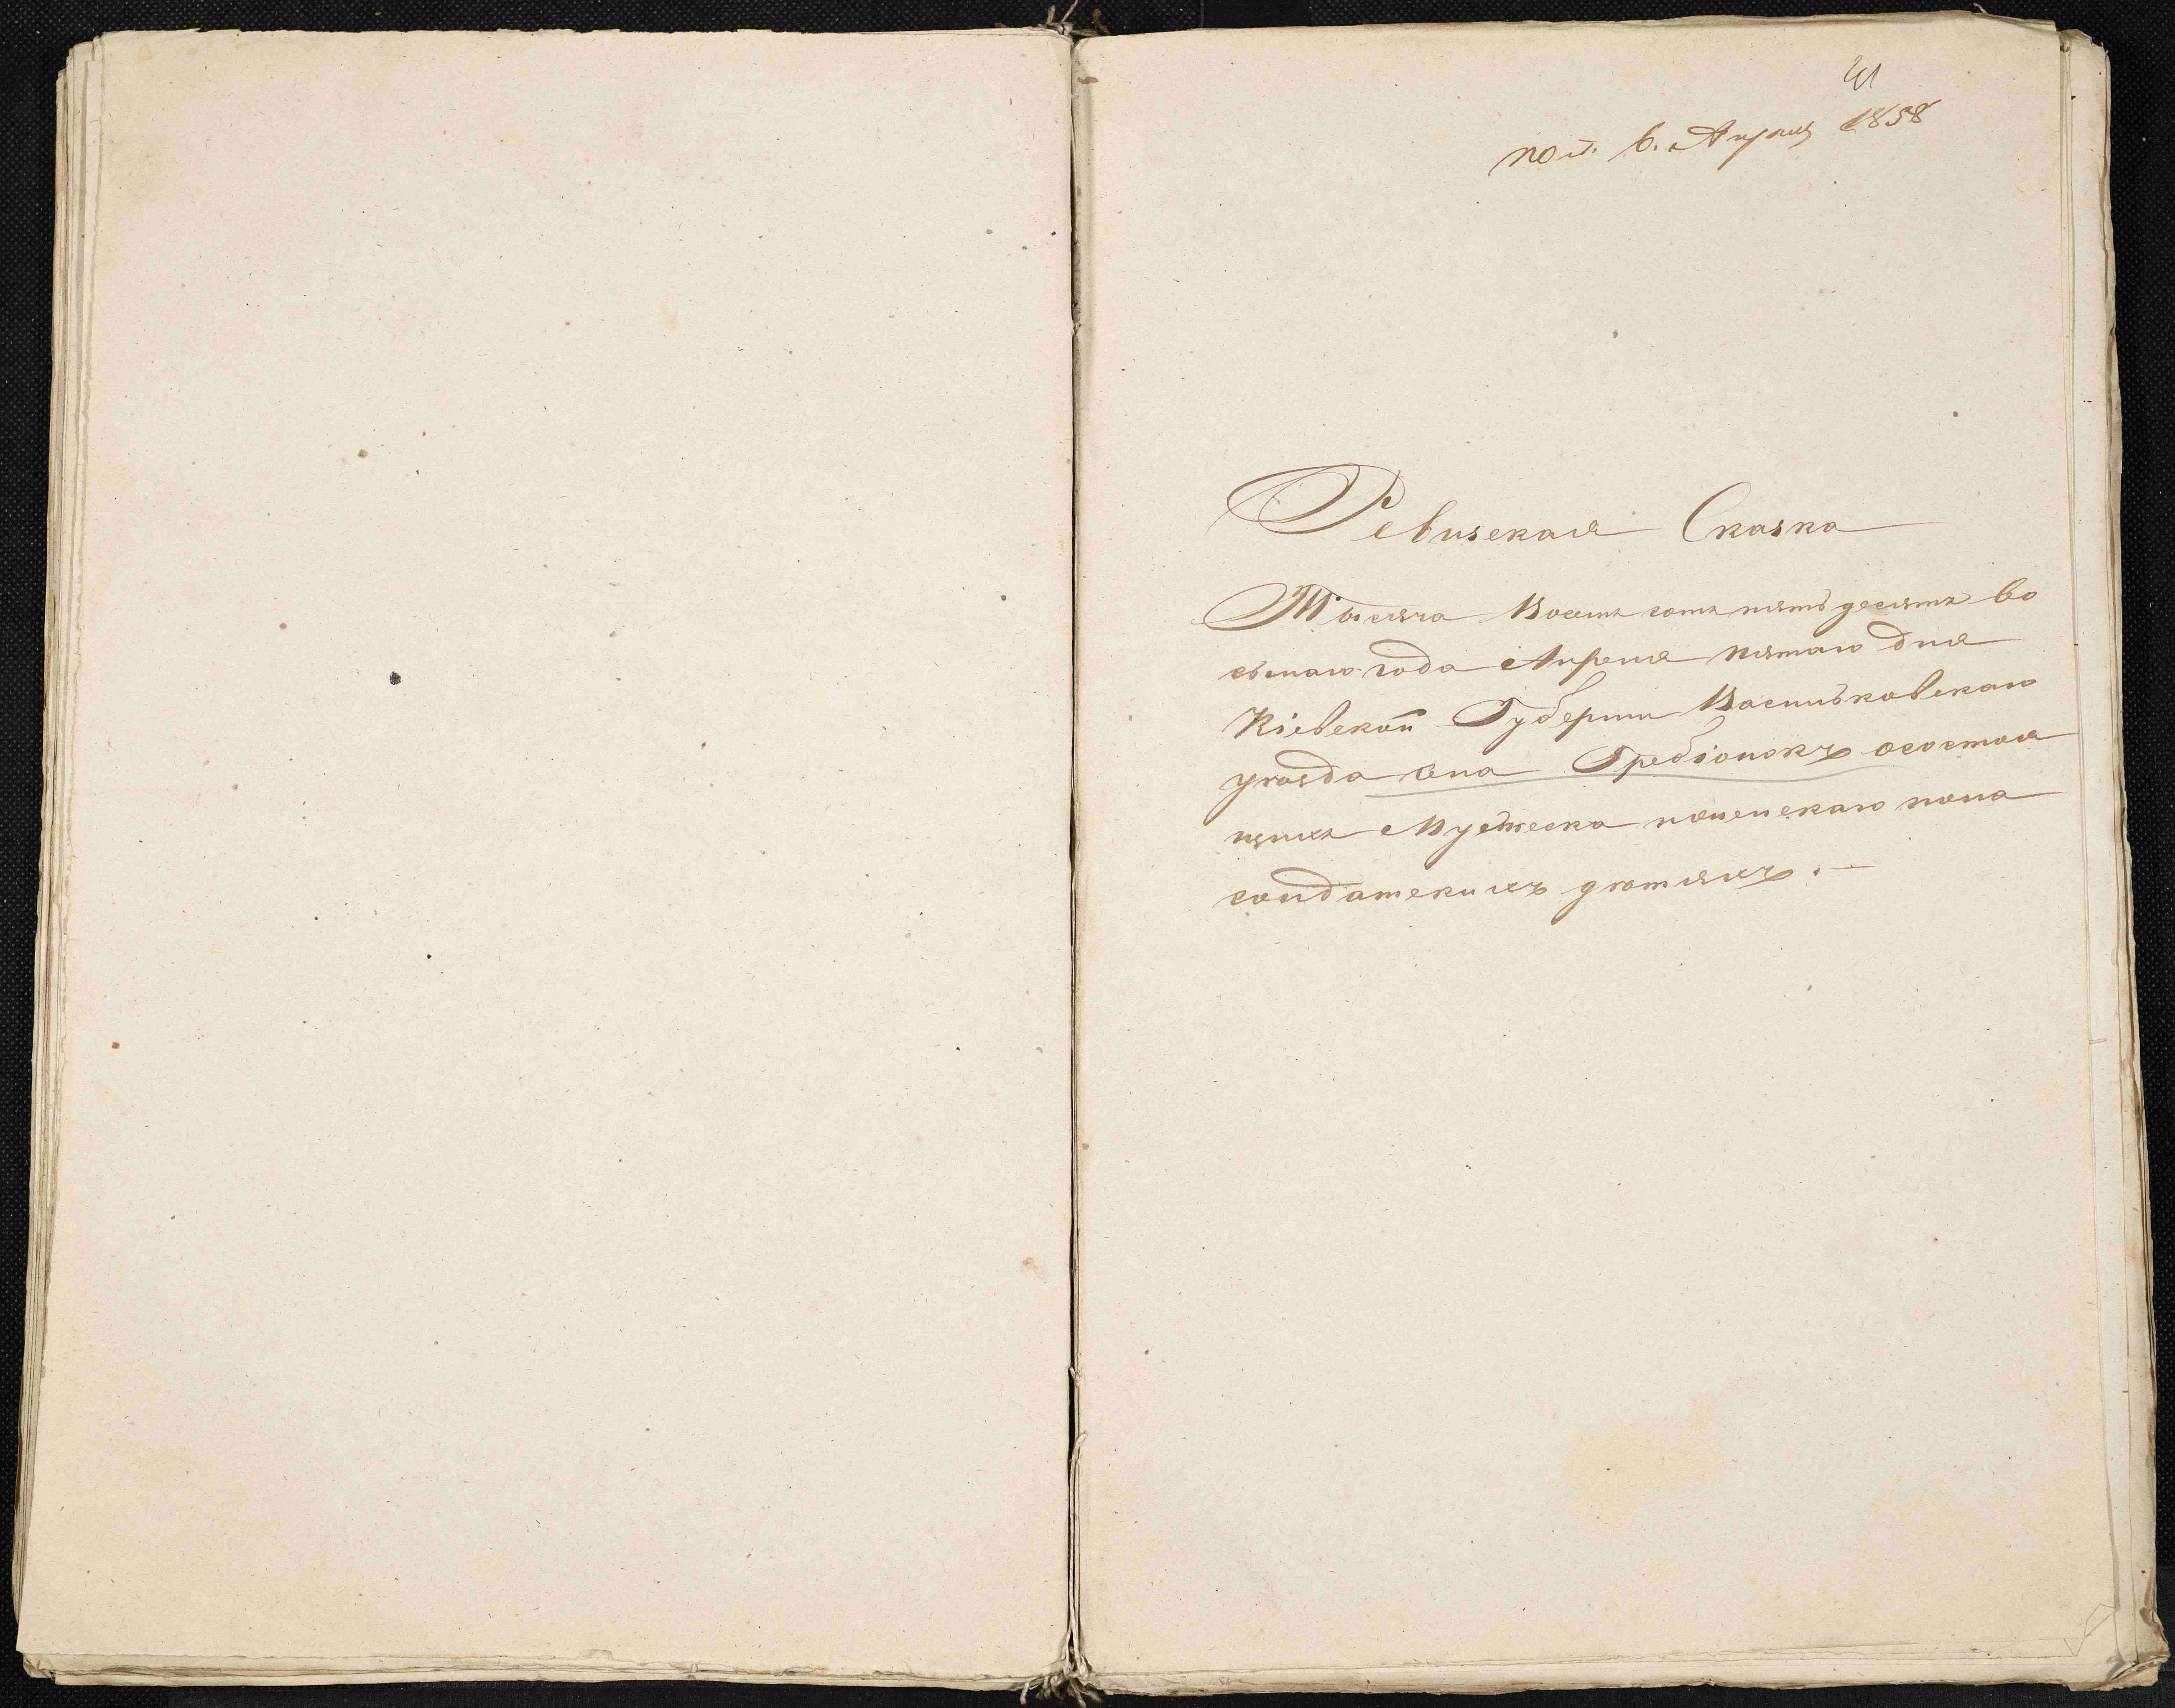 41
пол. 6. Апрѣля 1858
Ревизская Сказка
Тысяча Восемь сотъ пятьдесятъ во
сьмаго года Апреля пятаго дня
Кіевской Губерніи Васильковскаго
уѣзда села Гребіонокъ осостоя
щихъ Мужеска поженскаго пола
солдатскихъ дѣтяхъ. —